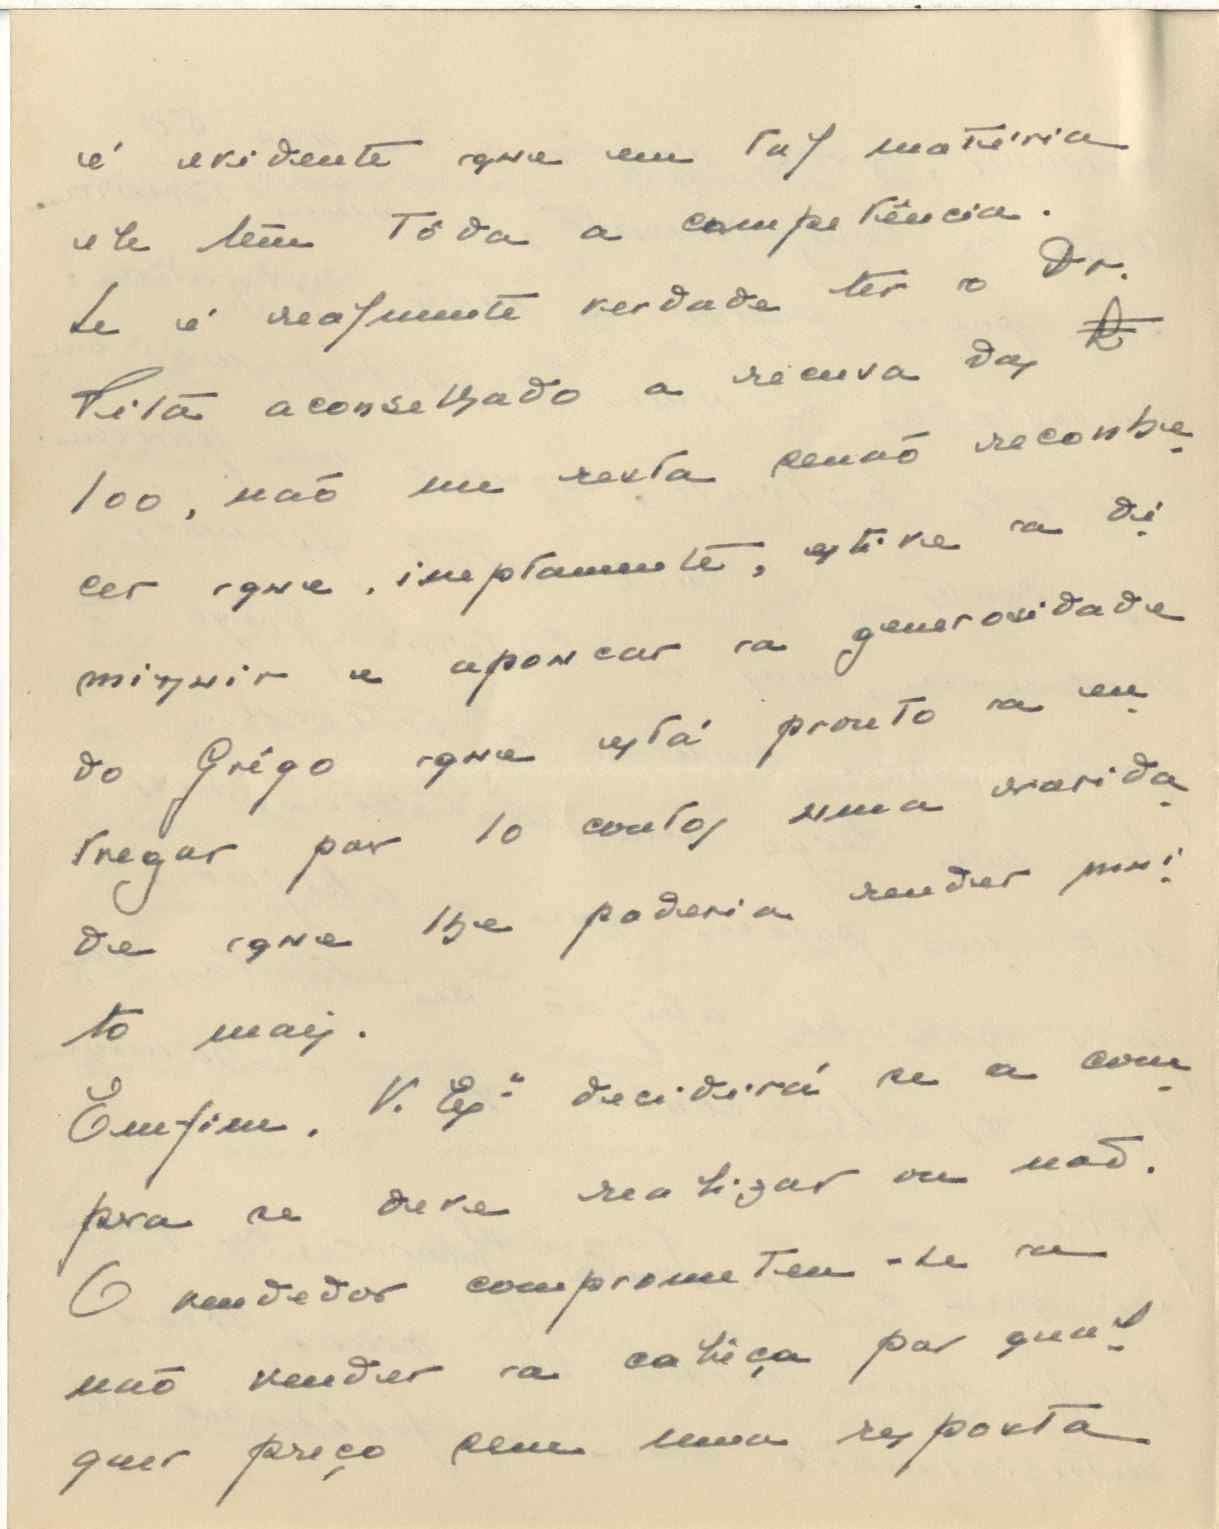 é evidente que em tal matéria
ele têm tôda a competência.
Se é realmente verdade ter o Dr.
Pitã aconselhado a recusa das £
100, não me resta senão reconhe-
cer que, ineptamente, estive a di-
minuir e apoucar a generosidade
do Grégo que está pronto a en-
tregar por 10 contos uma rarida-
de que lhe poderia render mui-
to mais.
Emfim, V. Exª decidirá se a com-
pra se deve realizar ou não.
O vendedor comprometeu-se a
não vender a cabeça por qual-
quer preço sem uma resposta